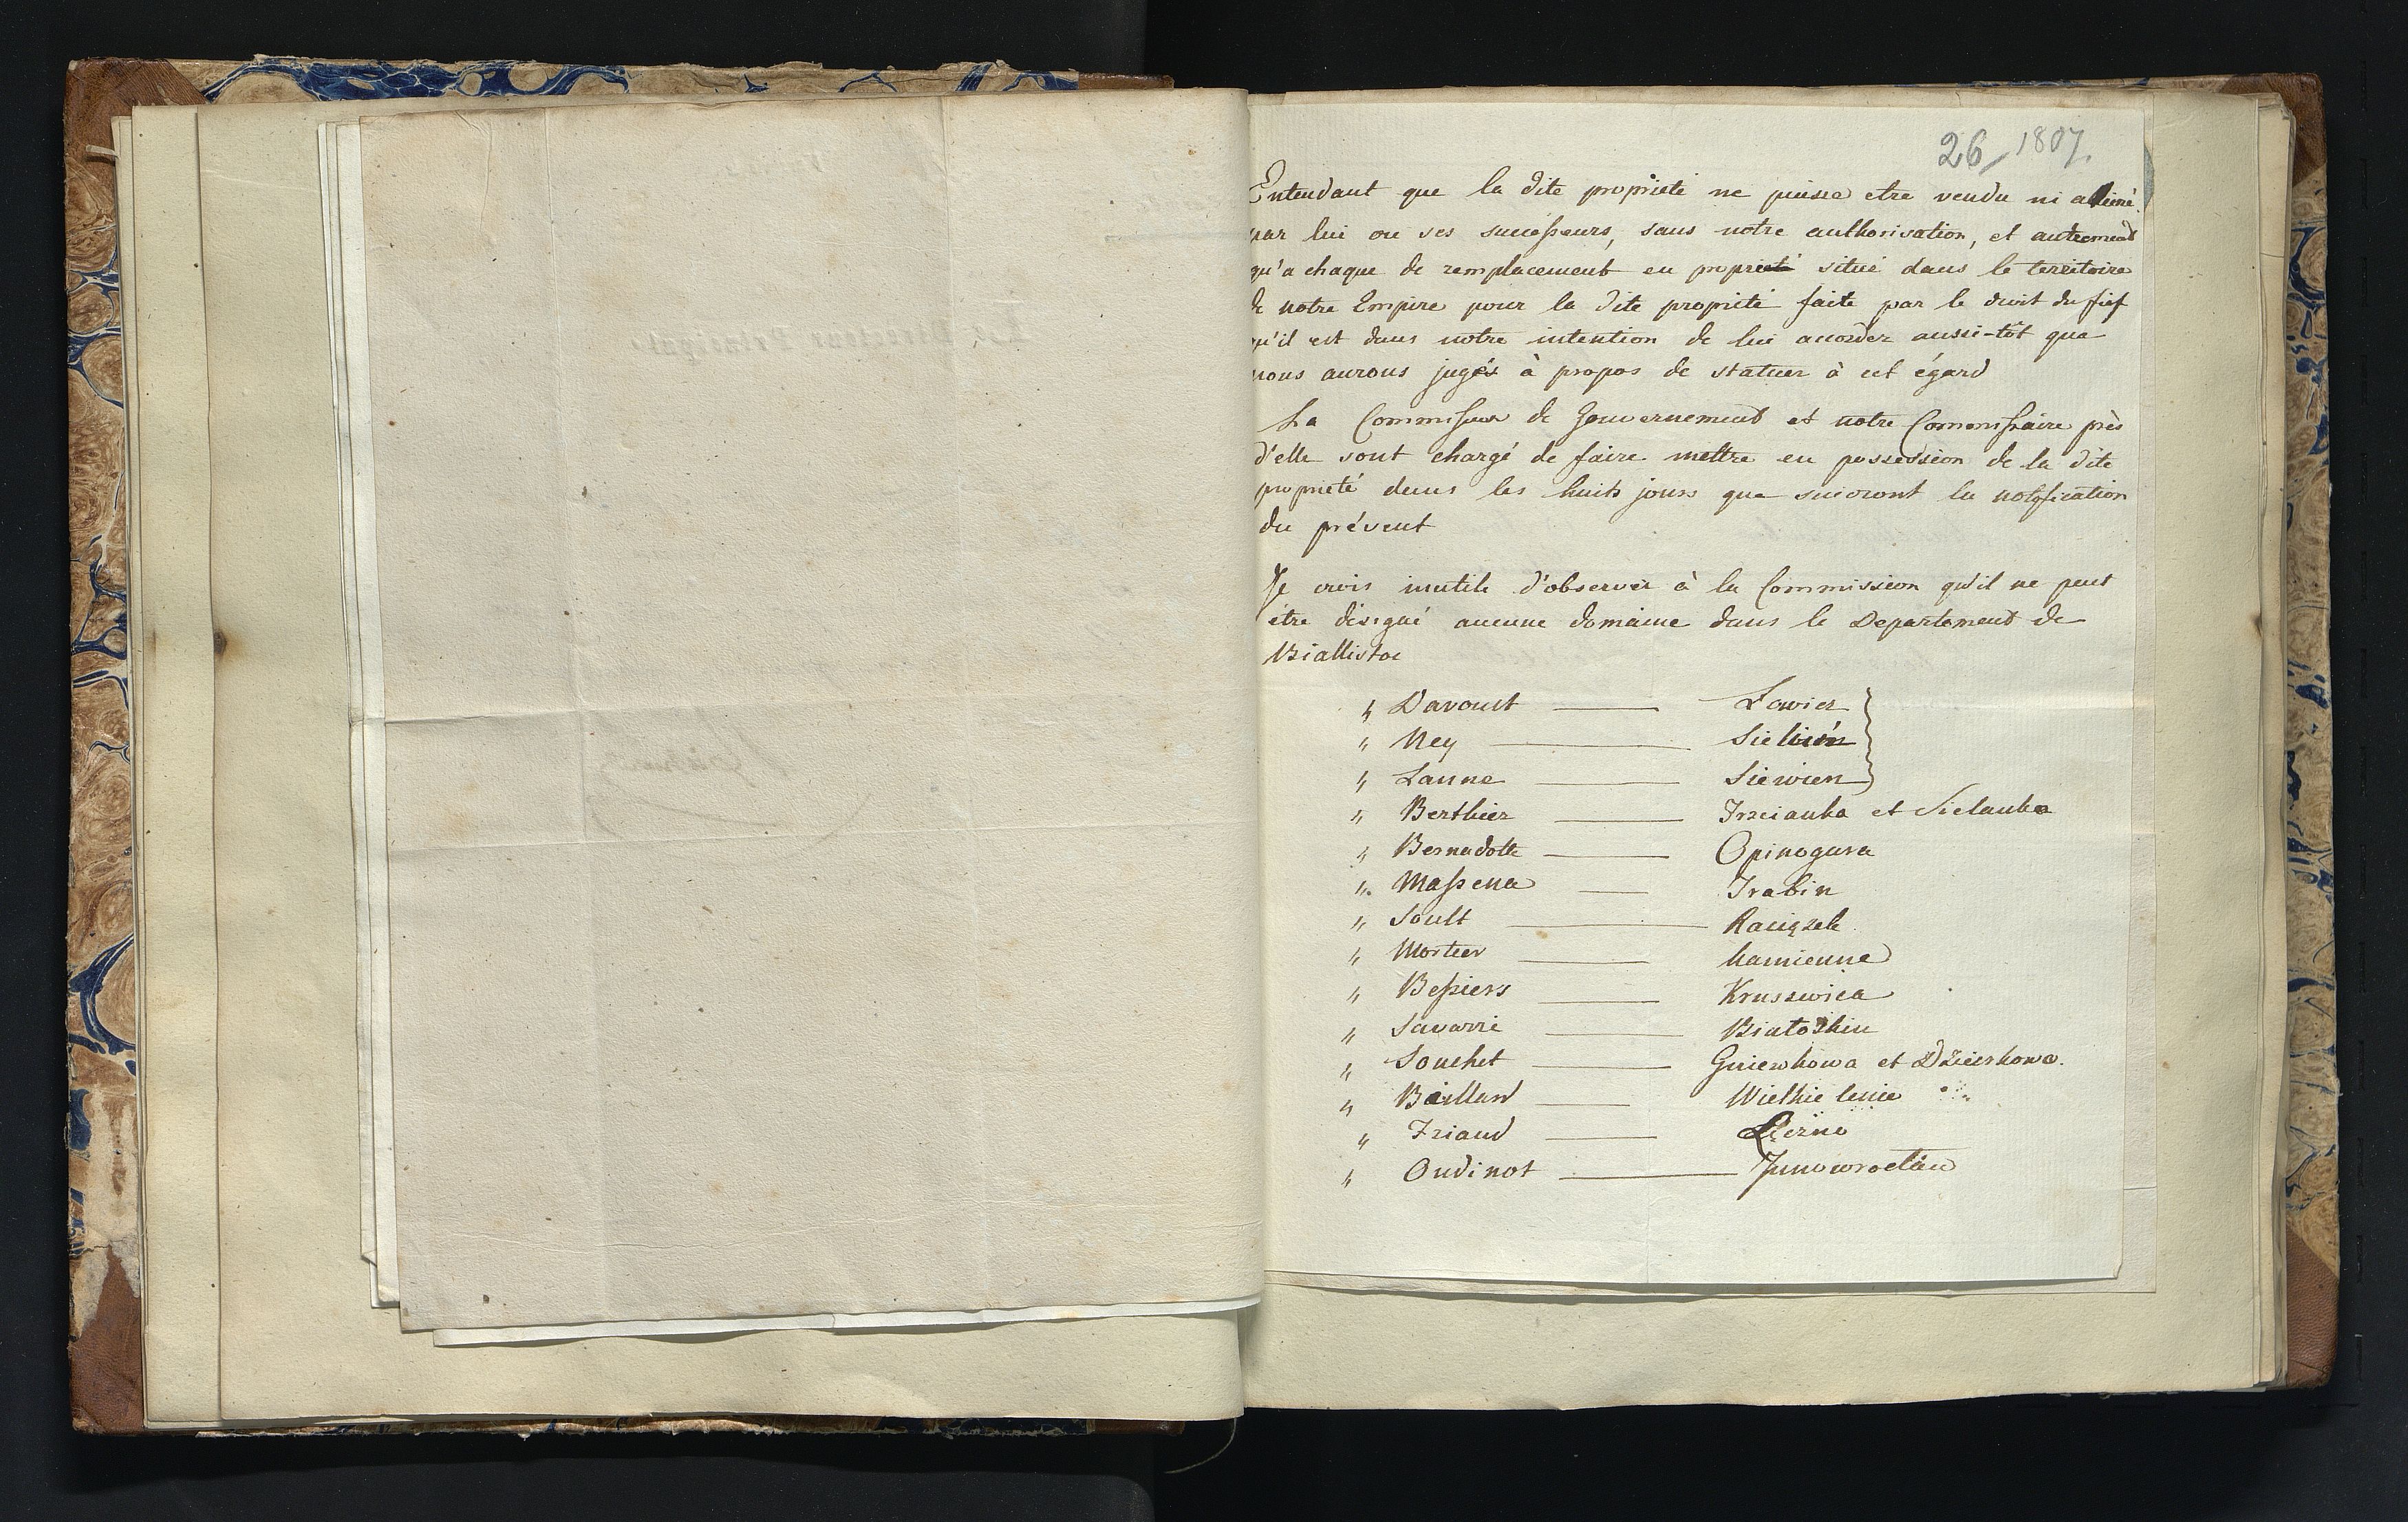 26 1807.
Entendant que la dite proprieté ne puisse etre vendu ni aliené
par lui ou ses successeurs, sans notre authorisation, et autrement
qu'a chaque de remplacement en proprieté situé dans le territoire
de notre Empire pour la dite proprieté faite par le droit du fief
qu'il est dans notre intention de lui accorder aussi-tôt que
nous aurons jugés à propos de statuer à cet égard
La de Gouvernement et notre Commissaire près
d'elle sont chargé de faire mettre en possession de la dite
proprieté dans les huits jours que suivront la notification
du présent
Je crois inutile d'observer à la Commission qu'il ne peut
être désigné aucune domaine dans le Departement de
Biallistoc
" Davoust — Lowicz
" Ney — Sieluń
" Lanne — Siewierz
" Berthier — Trzcianka et Sielanka
" Bernadotte — Opinogura
" Massena — Grabin
" Soult — Raciązek
" Mortier — Kamienne
" Bessiers — Kruszwica
" Savarri —
" Souchet — Gniewkowa et
" —
" Friand —
" Oudinot — Junowroclau
Le Directeur Principal